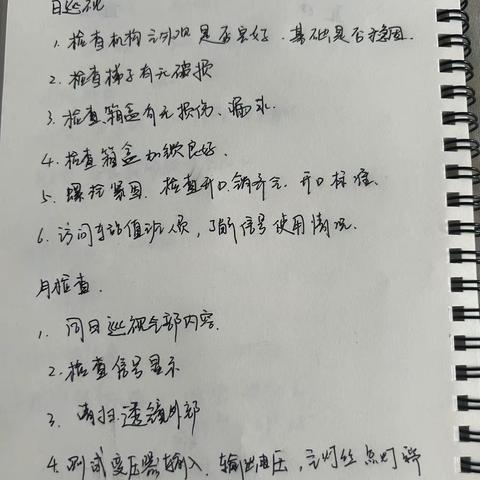 日巡视
1. 检查机构之外观是否良好、基础是否稳固
2. 检查梯子有无破损
3. 检查箱盒有无损伤、漏水.
4. 检查箱盒加锁良好.
5. 螺栓紧固. 检查开口销齐全. 开口标准.
6. 访问车站值班人员, 了解信号使用情况.
月检查.
1. 同日巡视全部内容.
2. 检查信号显示
3. 清扫透镜外部
4. 测试变压器输入、输出电压, 主灯丝点灯